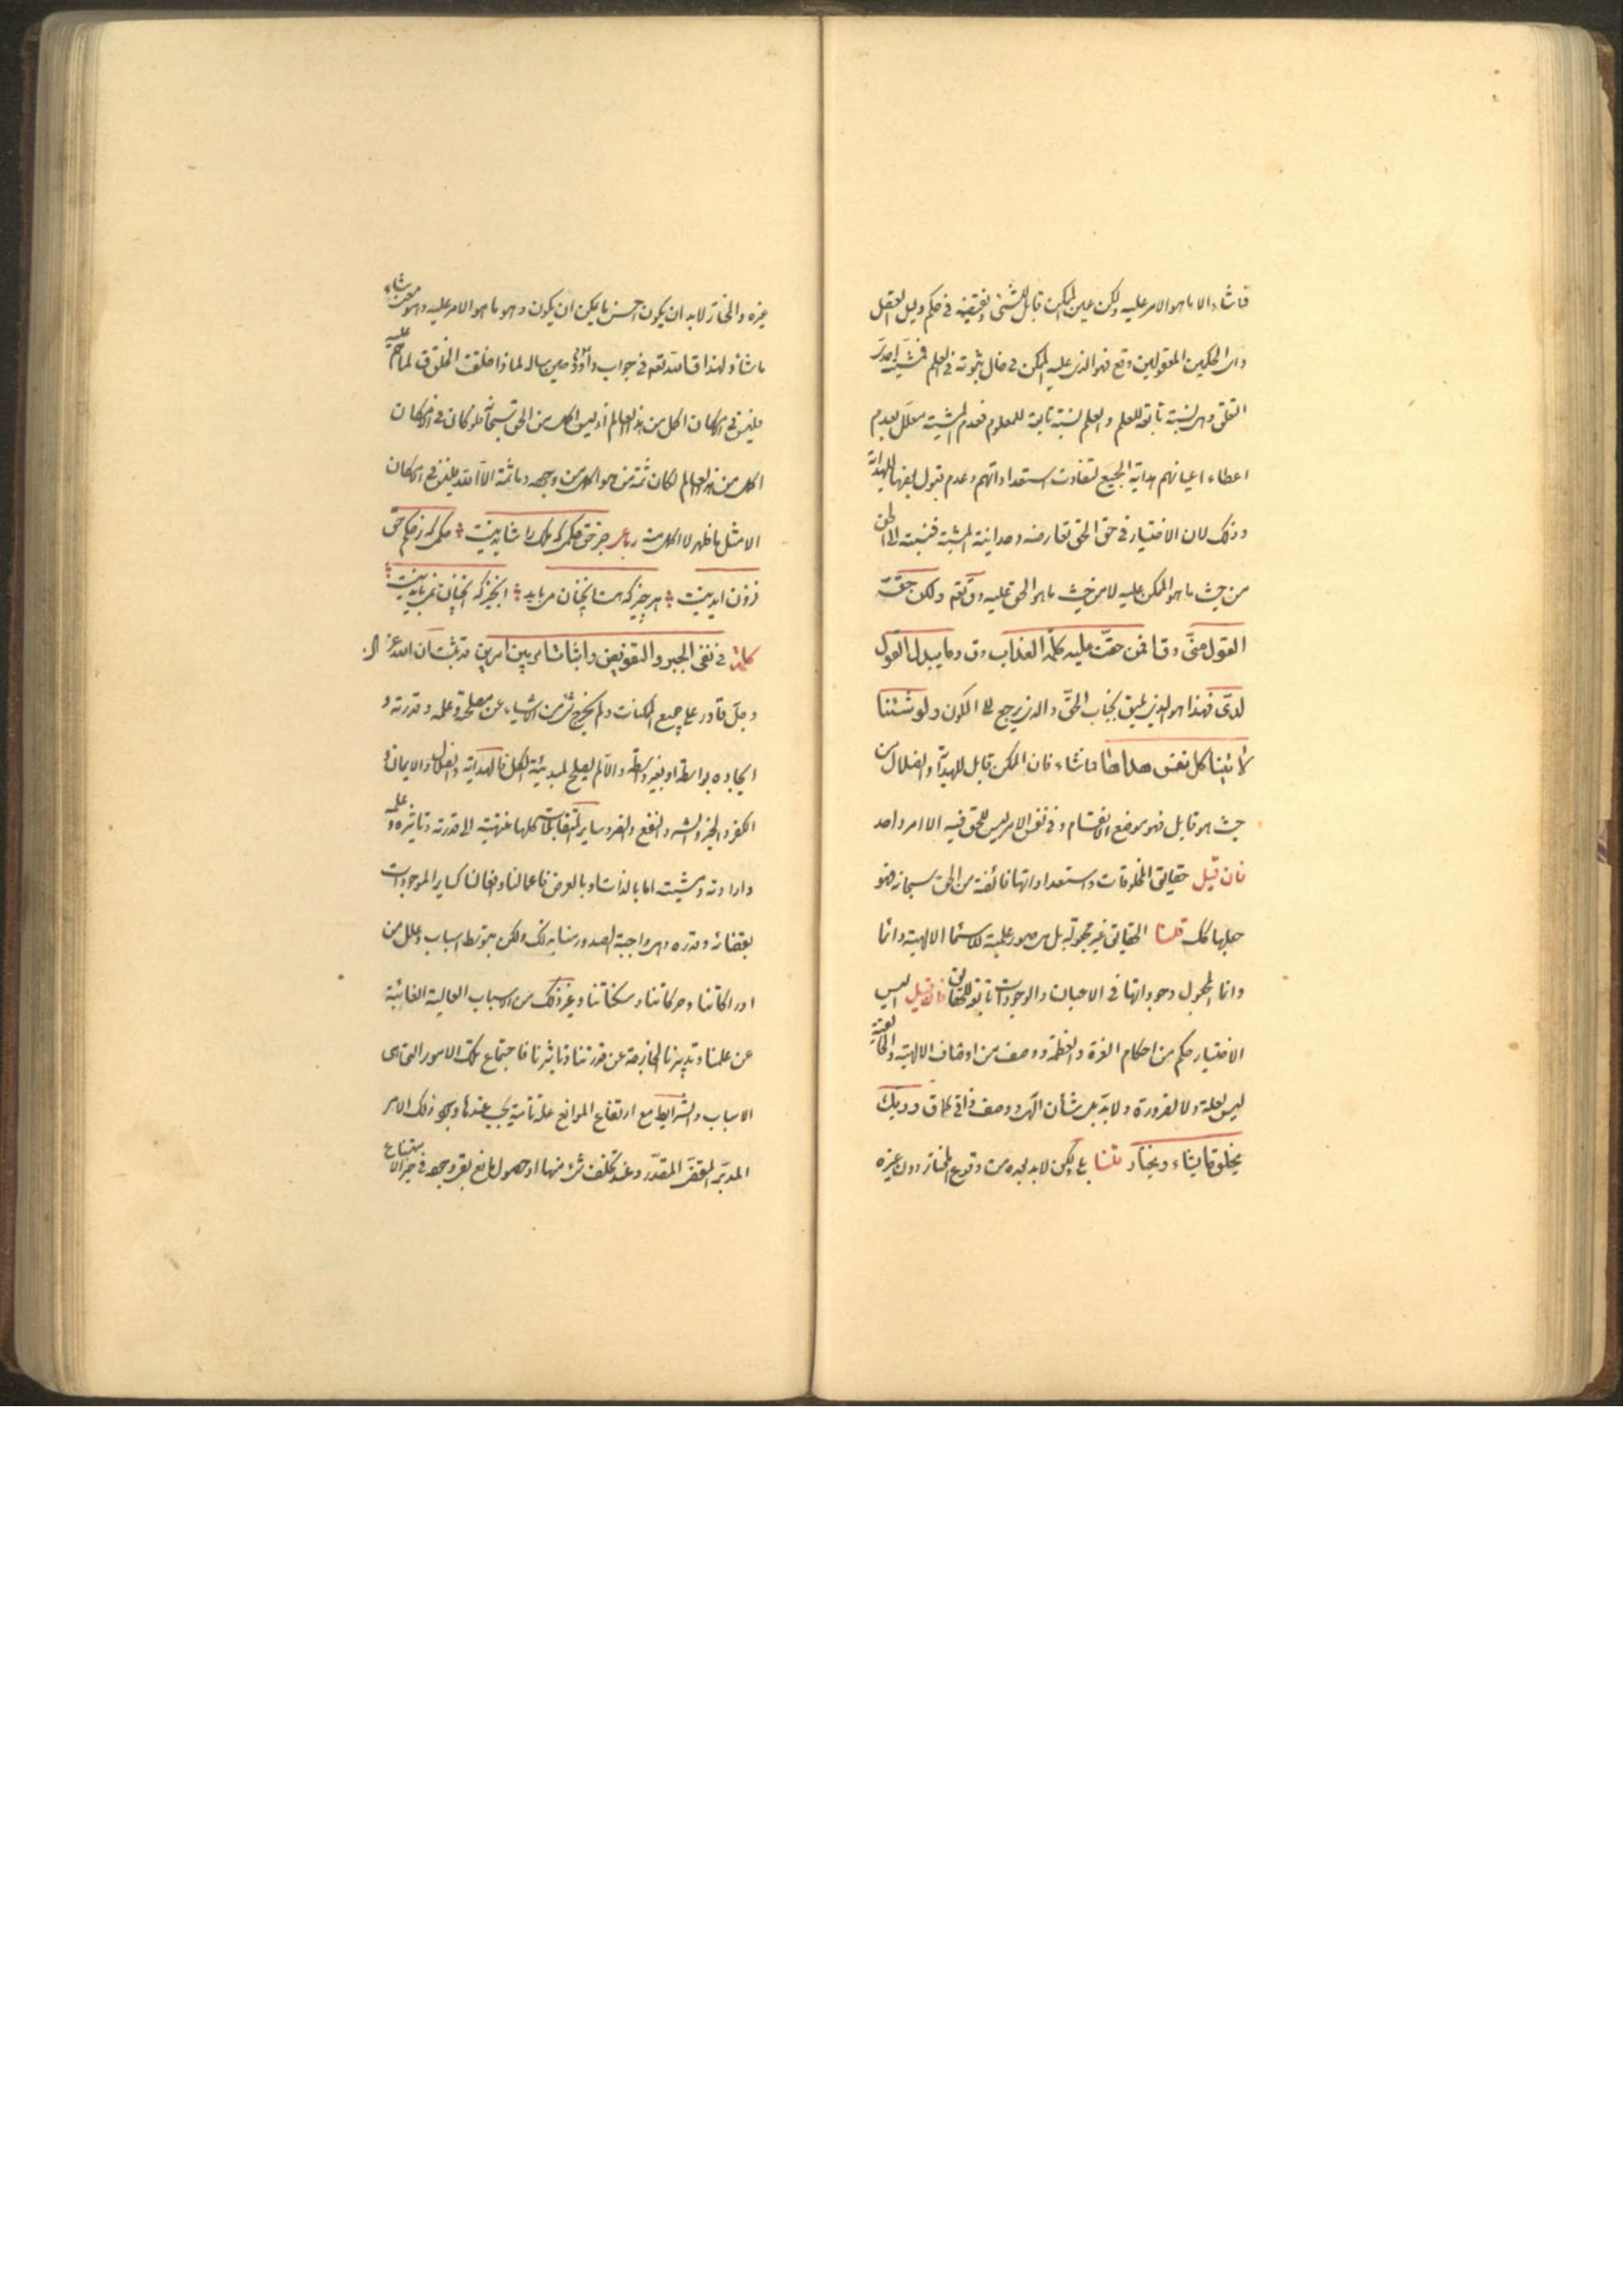 فما شاء الا ما هو الامر عليه ولكن عين الممكن قابل للشئ ونقيضه في حكم دليل العقل
واى الحكمين المعقولين وقع فهو الذى عليه الممكن في حال ثبوته في العلم فمشيته احدية
التعلق وهى نسبة تابعة للعلم والعلم نسبة تابعة للمعلوم فعدم المشية معلل بعدم
اعطاء اعيانهم هداية الجميع لتفاوت استعداداتهم وعدم قبول بعضها للهداية
وذلك لان الاختيار في حق الحق تعارضه وحدانية المشية فنسبته الى الحق
من حيث ما هو الممكن عليه لا من حيث ما هو الحق عليه وق تعم ولكن حق
القول منى وق افمن حقت عليه كلمة العذاب وق وما يبدل القول
لدى فهذا هو الذى يليق بجناب الحق والذى يرجع الى الكون ولو شئنا
لآتينا كل نفس هداها فما شاء فان الممكن قابل للهداية والضلال من
حيث هو قابل فهو موضع الانقسام وفي نفس الامر ليس للحق فيه الا امر واحد
فان قيل حقايق المخلوقات واستعداداتها فائضة من الحق سبحانه فهو
جعلها كك قلنا الحقايق غير مجعولة بل هى صور علمية للاسماء الالهية وانما
وانما المجعول وجوداتها في الاعيان والوجودات تابعة للحقايق فان قيل اليس
الاختيار حكم من احكام العزة والعظمة ووصف من اوصاف الالهية والخالقية
ليس لعلة ولا لضرورة ولابد بل شأن الهى ووصف ذاتى كما ق وربك
يخلق ما يشاء ويختار قلنا بلى ولكن لابد لهذه من وقوع المختار دون غيره
غيره والمختار لابد ان يكون احسن ما يمكن ان يكون وهو ما هو الامر عليه وهو معنى شاء
ما شاء ولهذا قال الله تعم في جواب داود حين ساله لماذا خلقت الخلق ق لما هم عليه
فليس في الامكان اكمل من هذا العالم اذ ليس اكمل من الحق سبحانه فلو كان في الامكان
اكمل من هذا العالم لكان ثمة من هو اكمل من موجده وما ثمة الا الله فليس في الامكان
الا مثل ما ظهر لا اكمل منه رباعى جز حق حكمى كه ملك را شايد نيست حكمى كه ز حكم حق
فزون ايد نيست هر چيز كه هست انچنان مى بايد انچيز كه انچنان نمى بايد نيست
كلمة في نفى الجبر والتفويض واثبات امر بين امرين قد ثبت ان الله عز
وجل قادر على جميع الممكنات ولم يخرج شئ من الاشياء عن مصلحة وعلمه وقدرته و
ايجاده بواسطة او بغير واسطة والا لم يصلح لمبدئية الكل فالهداية والضلال والايمان و
الكفر والخير والشر والنفع والضر وساير المتقابلات كلها منتهية الى قدرته وتاثيره وعلمه
وارادته ومشيته اما بالذات او بالعرض فاعمالنا وافعالنا كساير الموجودات
بقضائه وقدره وهى واجبة الصدور منا بذلك ولكن بتوسط اسباب وعلل من
ادراكاتنا وحركاتنا وسكناتنا وغير ذلك من الاسباب العالية الغائبة
عن علمنا وتدبيرنا الخارجة عن قدرتنا وتاثيرنا فاجتماع تلك الامور التى هى
الاسباب والشرايط مع ارتفاع الموانع علة تامة يجب عندها وجود ذلك الامر
المدبر المقضى المقدر وعند تخلف شئ منها او حصول مانع بقى وجوده في حيز الامتناع